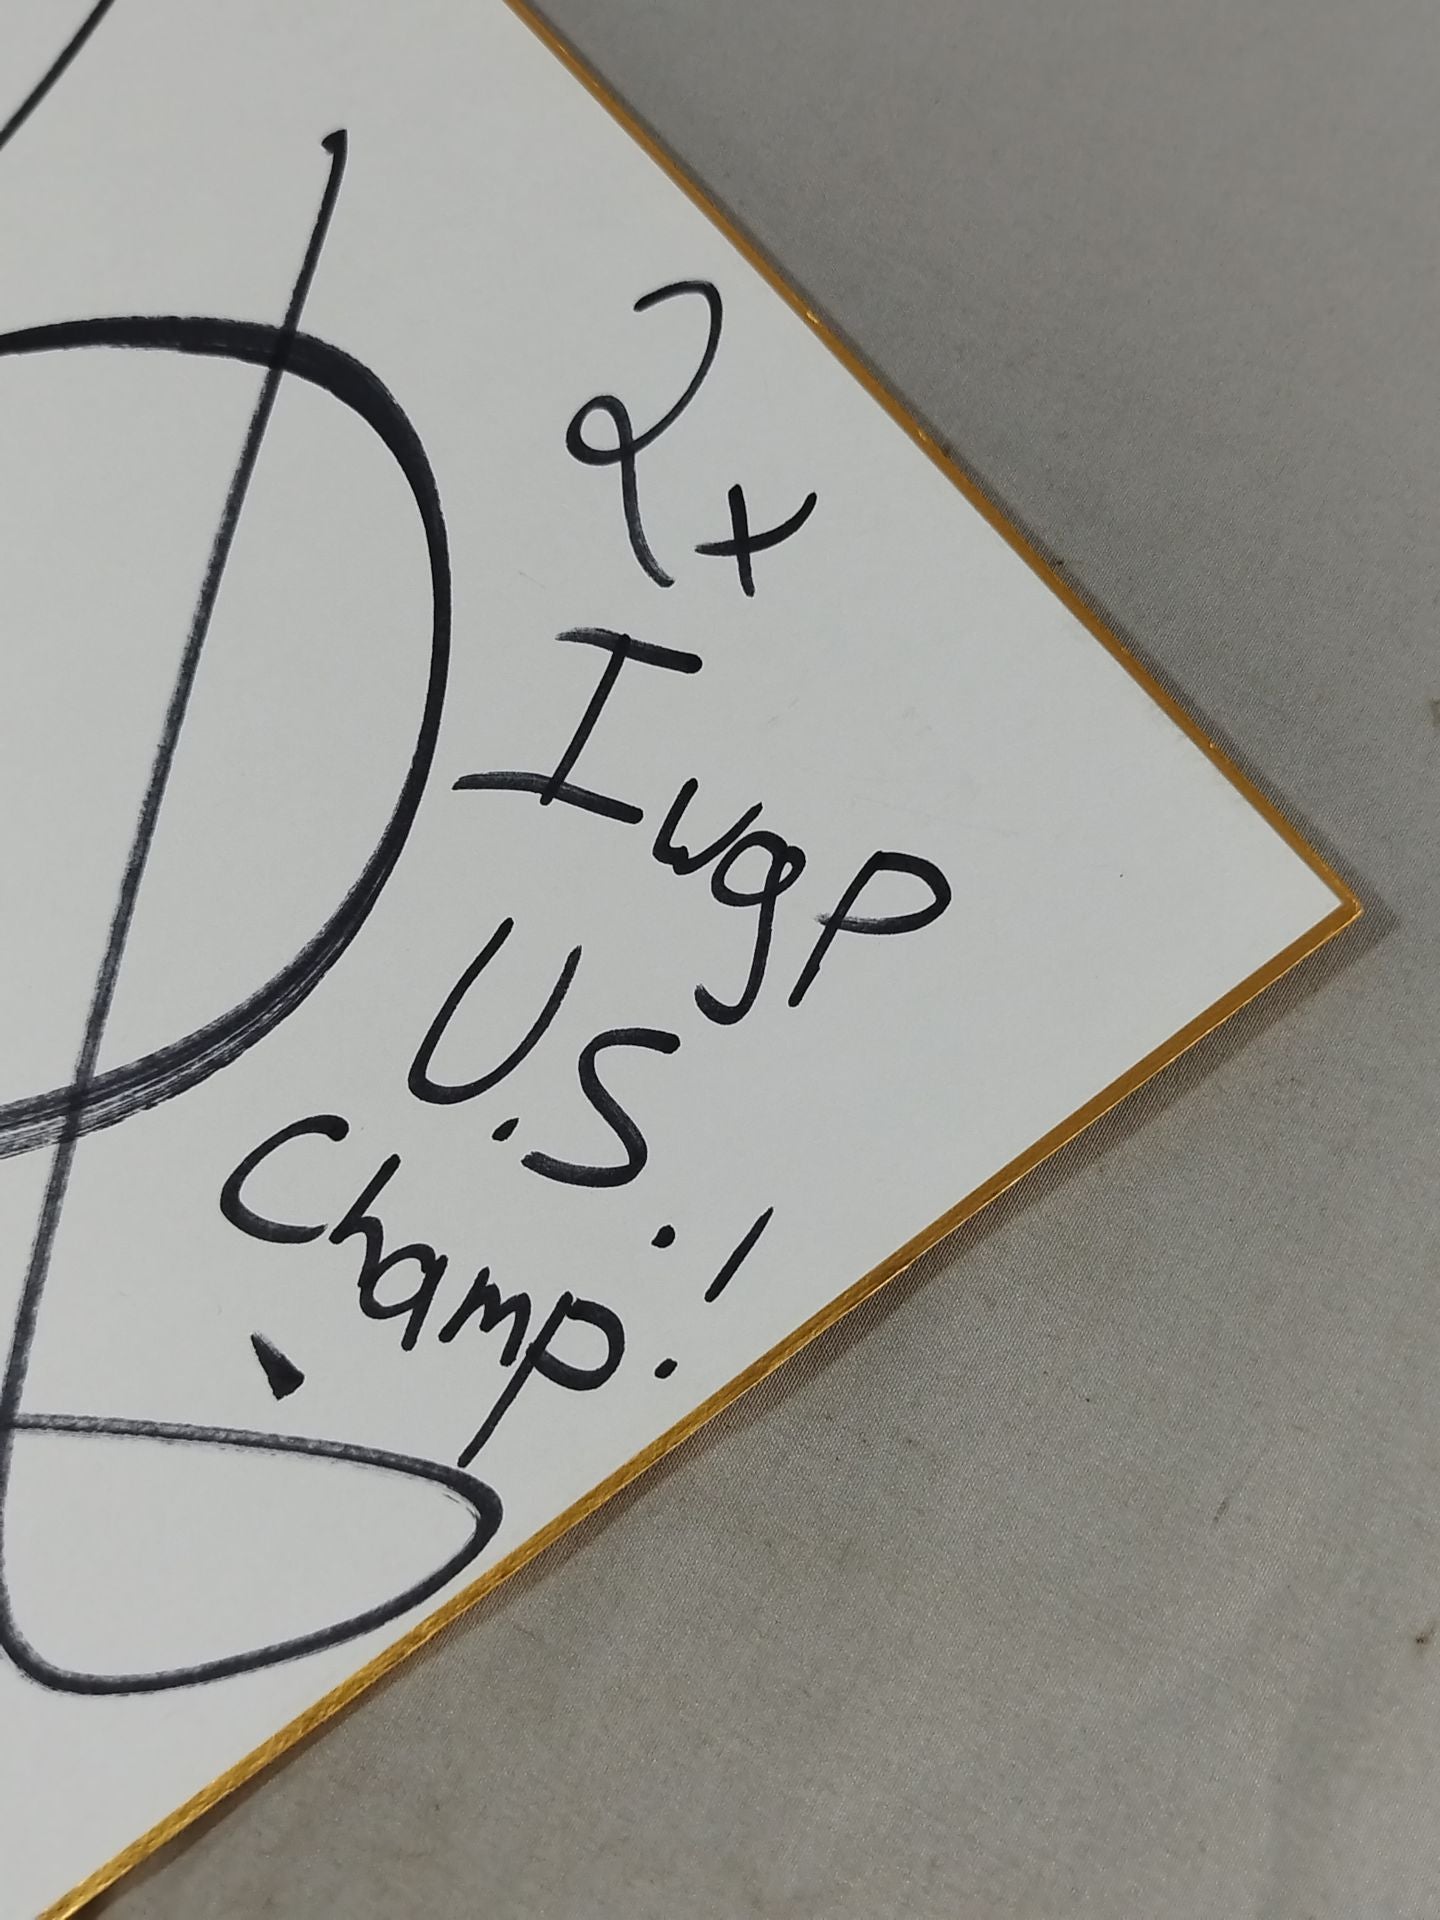 2x
IwgP
U.S.
Champ!